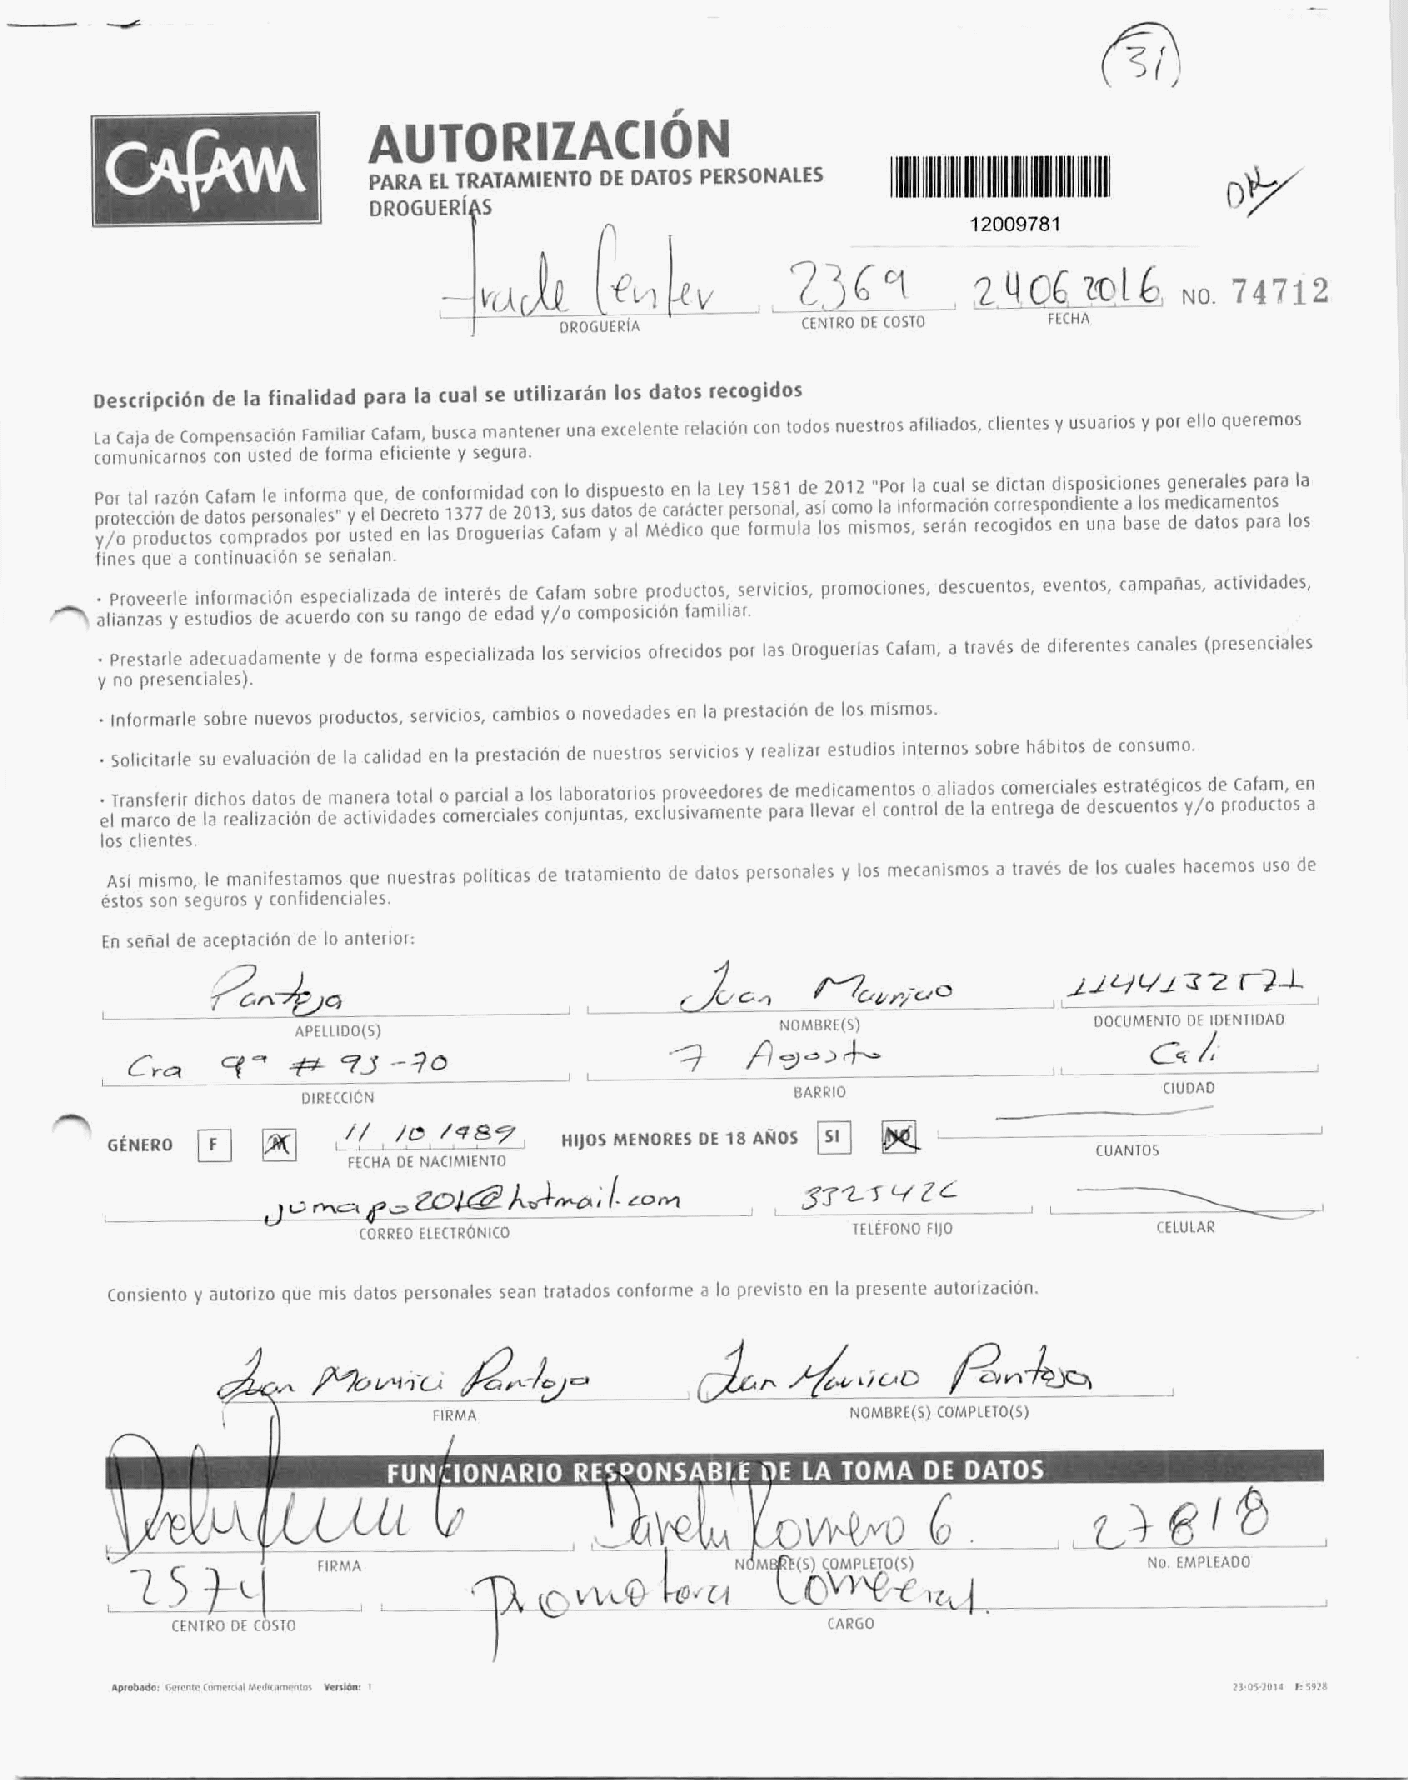 31
CAFAM
AUTORIZACIÓN
PARA EL TRATAMIENTO DE DATOS PERSONALES
DROGUERÍAS
12009781
OK
Trade Center 2369 24 06 2016 NO. 74712
DROGUERÍA CENTRO DE COSTO FECHA
Descripción de la finalidad para la cual se utilizarán los datos recogidos
La Caja de Compensación Familiar Cafam, busca mantener una excelente relación con todos nuestros afiliados, clientes y usuarios y por ello queremos
comunicarnos con usted de forma eficiente y segura.
Por tal razón Cafam le informa que, de conformidad con lo dispuesto en la Ley 1581 de 2012 "Por la cual se dictan disposiciones generales para la
protección de datos personales" y el Decreto 1377 de 2013, sus datos de carácter personal, así como la información correspondiente a los medicamentos
y/o productos comprados por usted en las Droguerías Cafam y al Médico que formula los mismos, serán recogidos en una base de datos para los
fines que a continuación se señalan.
· Proveerle información especializada de interés de Cafam sobre productos, servicios, promociones, descuentos, eventos, campañas, actividades,
alianzas y estudios de acuerdo con su rango de edad y/o composición familiar.
· Prestarle adecuadamente y de forma especializada los servicios ofrecidos por las Droguerías Cafam, a través de diferentes canales (presenciales
y no presenciales).
· Informarle sobre nuevos productos, servicios, cambios o novedades en la prestación de los mismos.
· Solicitarle su evaluación de la calidad en la prestación de nuestros servicios y realizar estudios internos sobre hábitos de consumo.
· Transferir dichos datos de manera total o parcial a los laboratorios proveedores de medicamentos o aliados comerciales estratégicos de Cafam, en
el marco de la realización de actividades comerciales conjuntas, exclusivamente para llevar el control de la entrega de descuentos y/o productos a
los clientes.
Así mismo, le manifestamos que nuestras políticas de tratamiento de datos personales y los mecanismos a través de los cuales hacemos uso de
éstos son seguros y confidenciales.
En señal de aceptación de lo anterior:
Pantoja Juan Mauricio 1144132571
APELLIDO(S) NOMBRE(S) DOCUMENTO DE IDENTIDAD
Cra 9ª # 93-70 7 Agosto Cali
DIRECCIÓN BARRIO CIUDAD
GÉNERO F M 11 10 1989 HIJOS MENORES DE 18 AÑOS SI NO
FECHA DE NACIMIENTO CUANTOS
jumapo201@hotmail.com 3325426
CORREO ELECTRÓNICO TELÉFONO FIJO CELULAR
Consiento y autorizo que mis datos personales sean tratados conforme a lo previsto en la presente autorización.
Juan Maurici Pantoja Juan Mauricio Pantoja
FIRMA NOMBRE(S) COMPLETO(S)
FUNCIONARIO RESPONSABLE DE LA TOMA DE DATOS
Darely Romero G. 27818
FIRMA NOMBRE(S) COMPLETO(S) No. EMPLEADO
2574 Promotora Comercial.
CENTRO DE COSTO CARGO
Aprobado: Gerente Comercial Medicamentos Versión: 1 23-05-2014 F: 5928